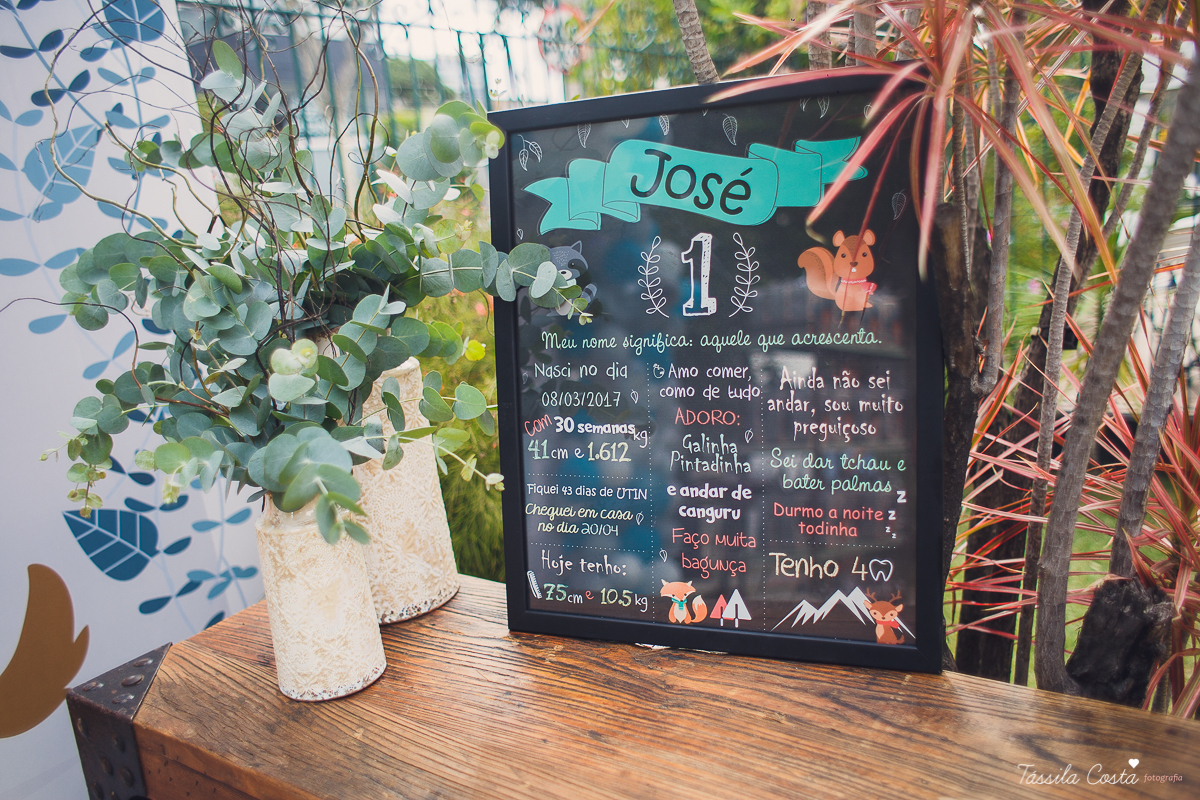 José
1
Meu nome significa: aquele que acrescenta.
Nasci no dia
08/03/2017
com 30 semanas
41cm e 1.612 kg
Fiquei 43 dias de UTIN
Cheguei em casa
no dia 20/04
Hoje tenho:
75cm e 10.5kg
Amo comer,
como de tudo
ADORO:
Galinha
Pintadinha
e andar de
canguru
Faço muita
bagunça
Ainda não sei
andar, sou muito
preguiçoso
Sei dar tchau e
bater palmas
Durmo a noite
todinha
z z z z
Tenho 4
Tássila Costa fotografia